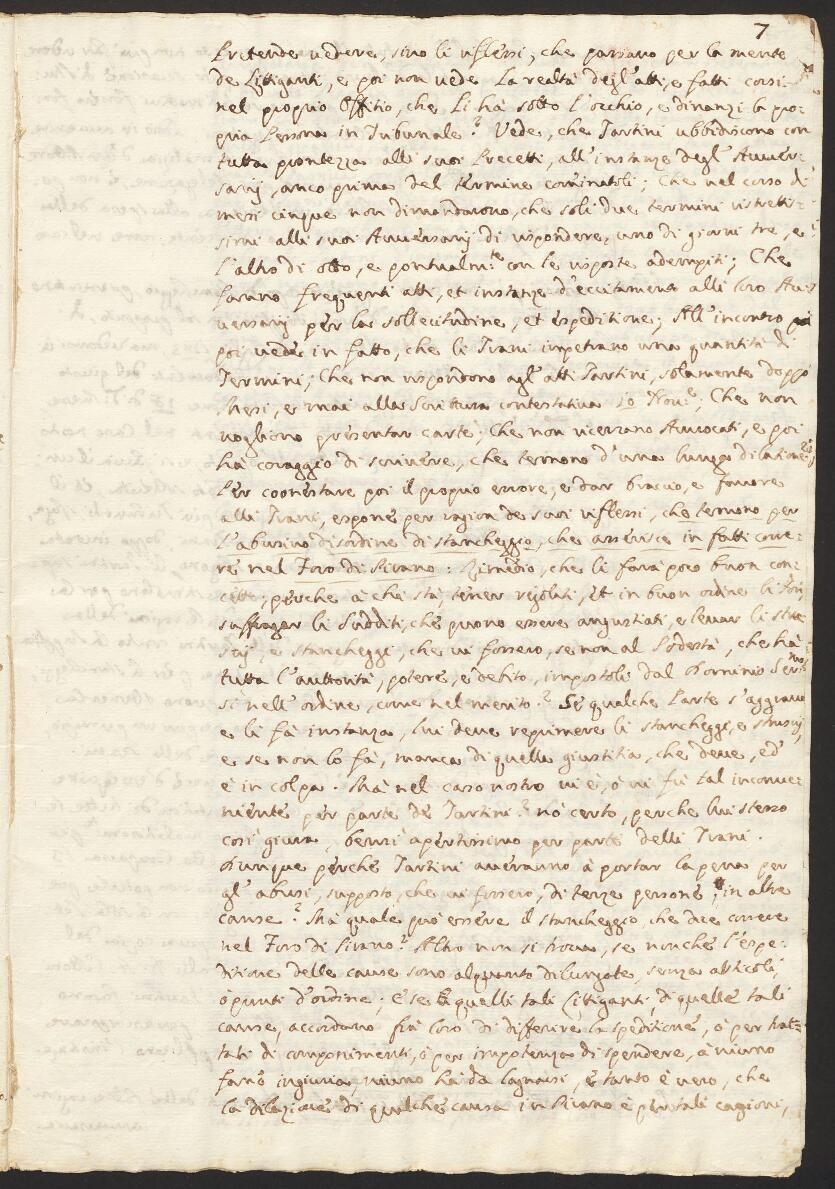 7
Pretende vedere, sino li riflessi, che passano per la mente
de Littiganti, e poi non vede la realtà degl'atti, e fatti corsi
nel proprio Offitio, che li hà sotto l'occhio, e dinanzi la pro-
pria Persona in Tribunale? Vede, che Tartini ubbidiscono con
tutta prontezza alli suoi Precetti, all'instanze degl'Auuer-
sarij, anco prima del termine cominatoli; Che nel corso di
mesi cinque non dimandorono, che soli due termini ristrettis-
simi alli suoi Auuersarij di rispondere, uno di giorni tre, e
l'altro di otto, e pontualm:te con le risposte adempiti; Che
fanno frequenti atti, et instanze d'eccitamento alli loro Au-
uersarij per la sollecitudine, et espeditione; All'incontro
poi vede in fatto, che li Trani impetrano una quantità di
Termini; Che non rispondono agl'atti Tartini, solamente doppò
Mesi, e mai alla Scrittura contestativa 10 Nov:e; Che non
vogliono presentar carte; Che non ricercano Auuocati, e poi
hà coraggio di scrivere, che temono d'una lunga dilatione:
Per coonestare poi il proprio errore, e dar braccio, e favore
alli Trani, espone per ragion de suoi riflessi, che temono per
l'abusivo disordine di stancheggio, che asserisce in fatti corre-
re nel Foro di Pirano: Rimedio, che li farà poco buon con-
cetto; perche à chi stà, tener regolati, et in buon ordine li Fori,
suffragar li Sudditi, che ponno essere angustiati, e levar li
e stancheggi, che vi fossero, se non al Podestà, che hà
tutta l'auttorità, potere, e debito, impostoli dal Dominio Ser:mo
sì nell'ordine, come nel merito? Se qualche Parte s'aggrava
e li fà instanza, lui deve reprimere li stancheggi, e
e se non lo fà, manca di quella giustitia, che deve, ed'
è in colpa. Mà nel caso nostro vi è, ò vi fù tal inconve-
niente per parte de Tartini? nò certo, perche lui stesso
così giura, bensì apertissimo per parte delli Trani.
Dunque perche Tartini averanno à portar la pena per
gl'abusi, supposto, che vi fossero, di terze persone, in altre
cause? Mà quale può essere il stancheggio, che dice correre
nel Foro di Pirano? Altro non si trova, se nonche l'espe-
ditione delle cause sono alquanto dilungate, senza atticoli,
ò punti d'ordine; E se quelli tali Littiganti, di quelle tali
cause, accordano frà loro di differire la speditione, ò per trat-
tati di componimenti, ò per impotenza di spendere, à niuno
fanno ingiuria, niuno hà da lagnarsi, e tanto è vero, che
la dilazione di qualche causa in Pirano è per tali cagioni,